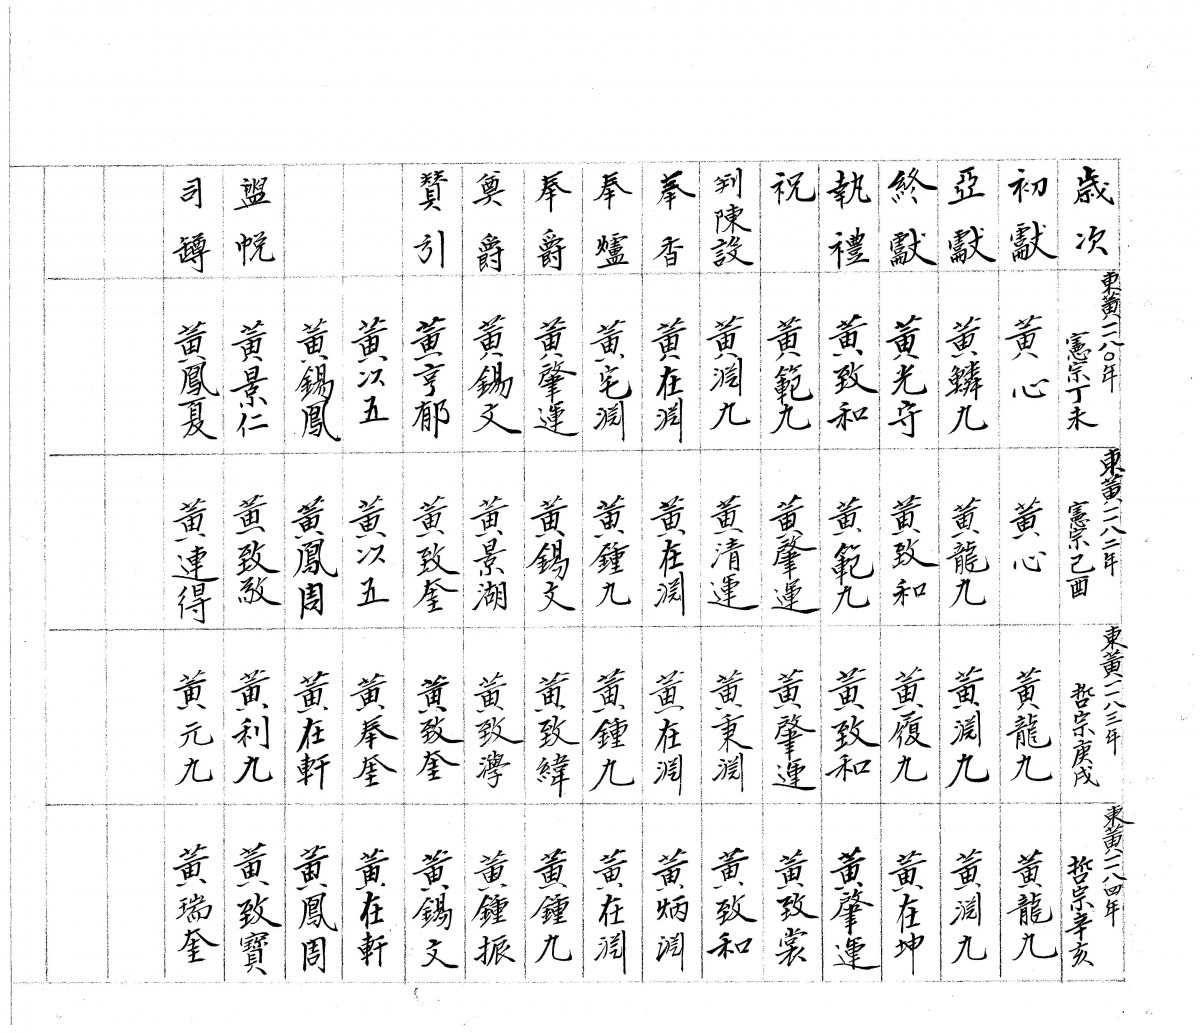 歳次 東黃一一八〇年 憲宗丁未 東黃一一八二年 憲宗己酉 東黃一一八三年 哲宗庚戌 東黃一一八四年 哲宗辛亥
初獻 黃心 黃心 黃龍九 黃龍九
亞獻 黃鱗九 黃龍九 黃淵九 黃淵九
終獻 黃光守 黃致和 黃履九 黃在坤
執禮 黃致和 黃範九 黃致和 黃肇運
祝 黃範九 黃肇運 黃肇運 黃致裳
判陳設 黃淵九 黃清運 黃秉淵 黃致和
奉香 黃在淵 黃在淵 黃在淵 黃炳淵
奉爐 黃宅淵 黃鍾九 黃鍾九 黃在淵
奉爵 黃肇運 黃錫文 黃致緯 黃鍾九
奠爵 黃錫文 黃景湖 黃致 黃鍾振
贊引 黃亨郁 黃致奎 黃致奎 黃錫文
黃以五 黃以五 黃奉奎 黃在軒
黃錫鳳 黃鳳周 黃在軒 黃鳳周
盥帨 黃景仁 黃致敬 黃利九 黃致寶
司罇 黃鳳夏 黃連得 黃元九 黃瑞奎